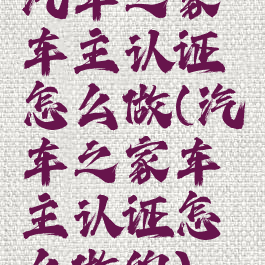 汽车之家
车主认证
怎么做(汽
车之家车
主认证怎
么做的)